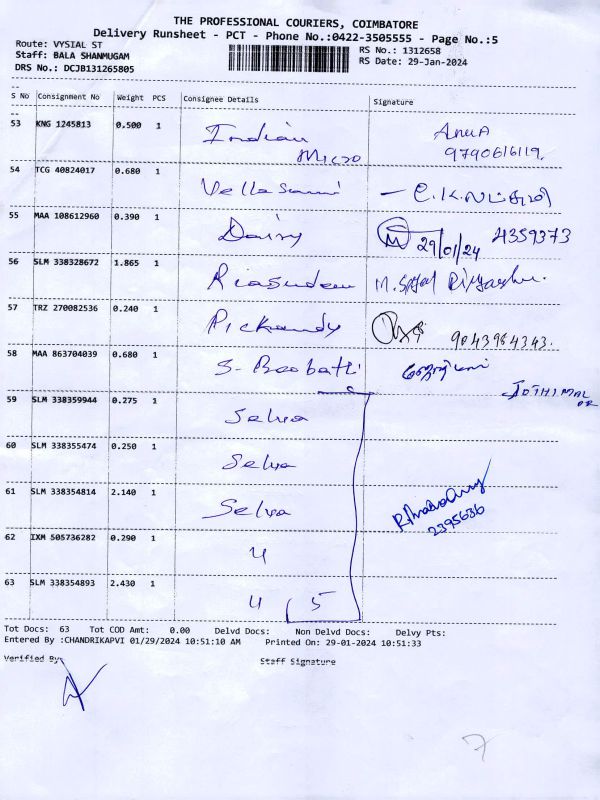 THE PROFESSIONAL COURIERS, COIMBATORE
Delivery Runsheet - PCT - Phone No.:0422-3505555 - Page No.:5
Route: VYSIAL ST
Staff: BALA SHANMUGAM
DRS No.: DCJB131265805
RS No.: 1312658
RS Date: 29-Jan-2024
S No Consignment No Weight PCS Consignee Details Signature
53 KNG 1245813 0.500 1 Indian Micro Anua 9790616119.
54 TCG 40824017 0.680 1 Vellasami
55 MAA 108612960 0.390 1 Dairy 29/01/24 4359373
56 SLM 338328672 1.865 1 Riasudeen
57 TRZ 270082536 0.240 1 Pickandy 9043984343.
58 MAA 863704039 0.680 1 JOTHIMAL
59 SLM 338359944 0.275 1 Selva
60 SLM 338355474 0.250 1 Selva
61 SLM 338354814 2.140 1 Selva 2395636
62 IXM 505736282 0.290 1 4
63 SLM 338354893 2.430 1 4 5
Tot Docs: 63 Tot COD Amt: 0.00 Delvd Docs: Non Delvd Docs: Delvy Pts:
Entered By :CHANDRIKAPVI 01/29/2024 10:51:10 AM Printed On: 29-01-2024 10:51:33
Verified By Staff Signature